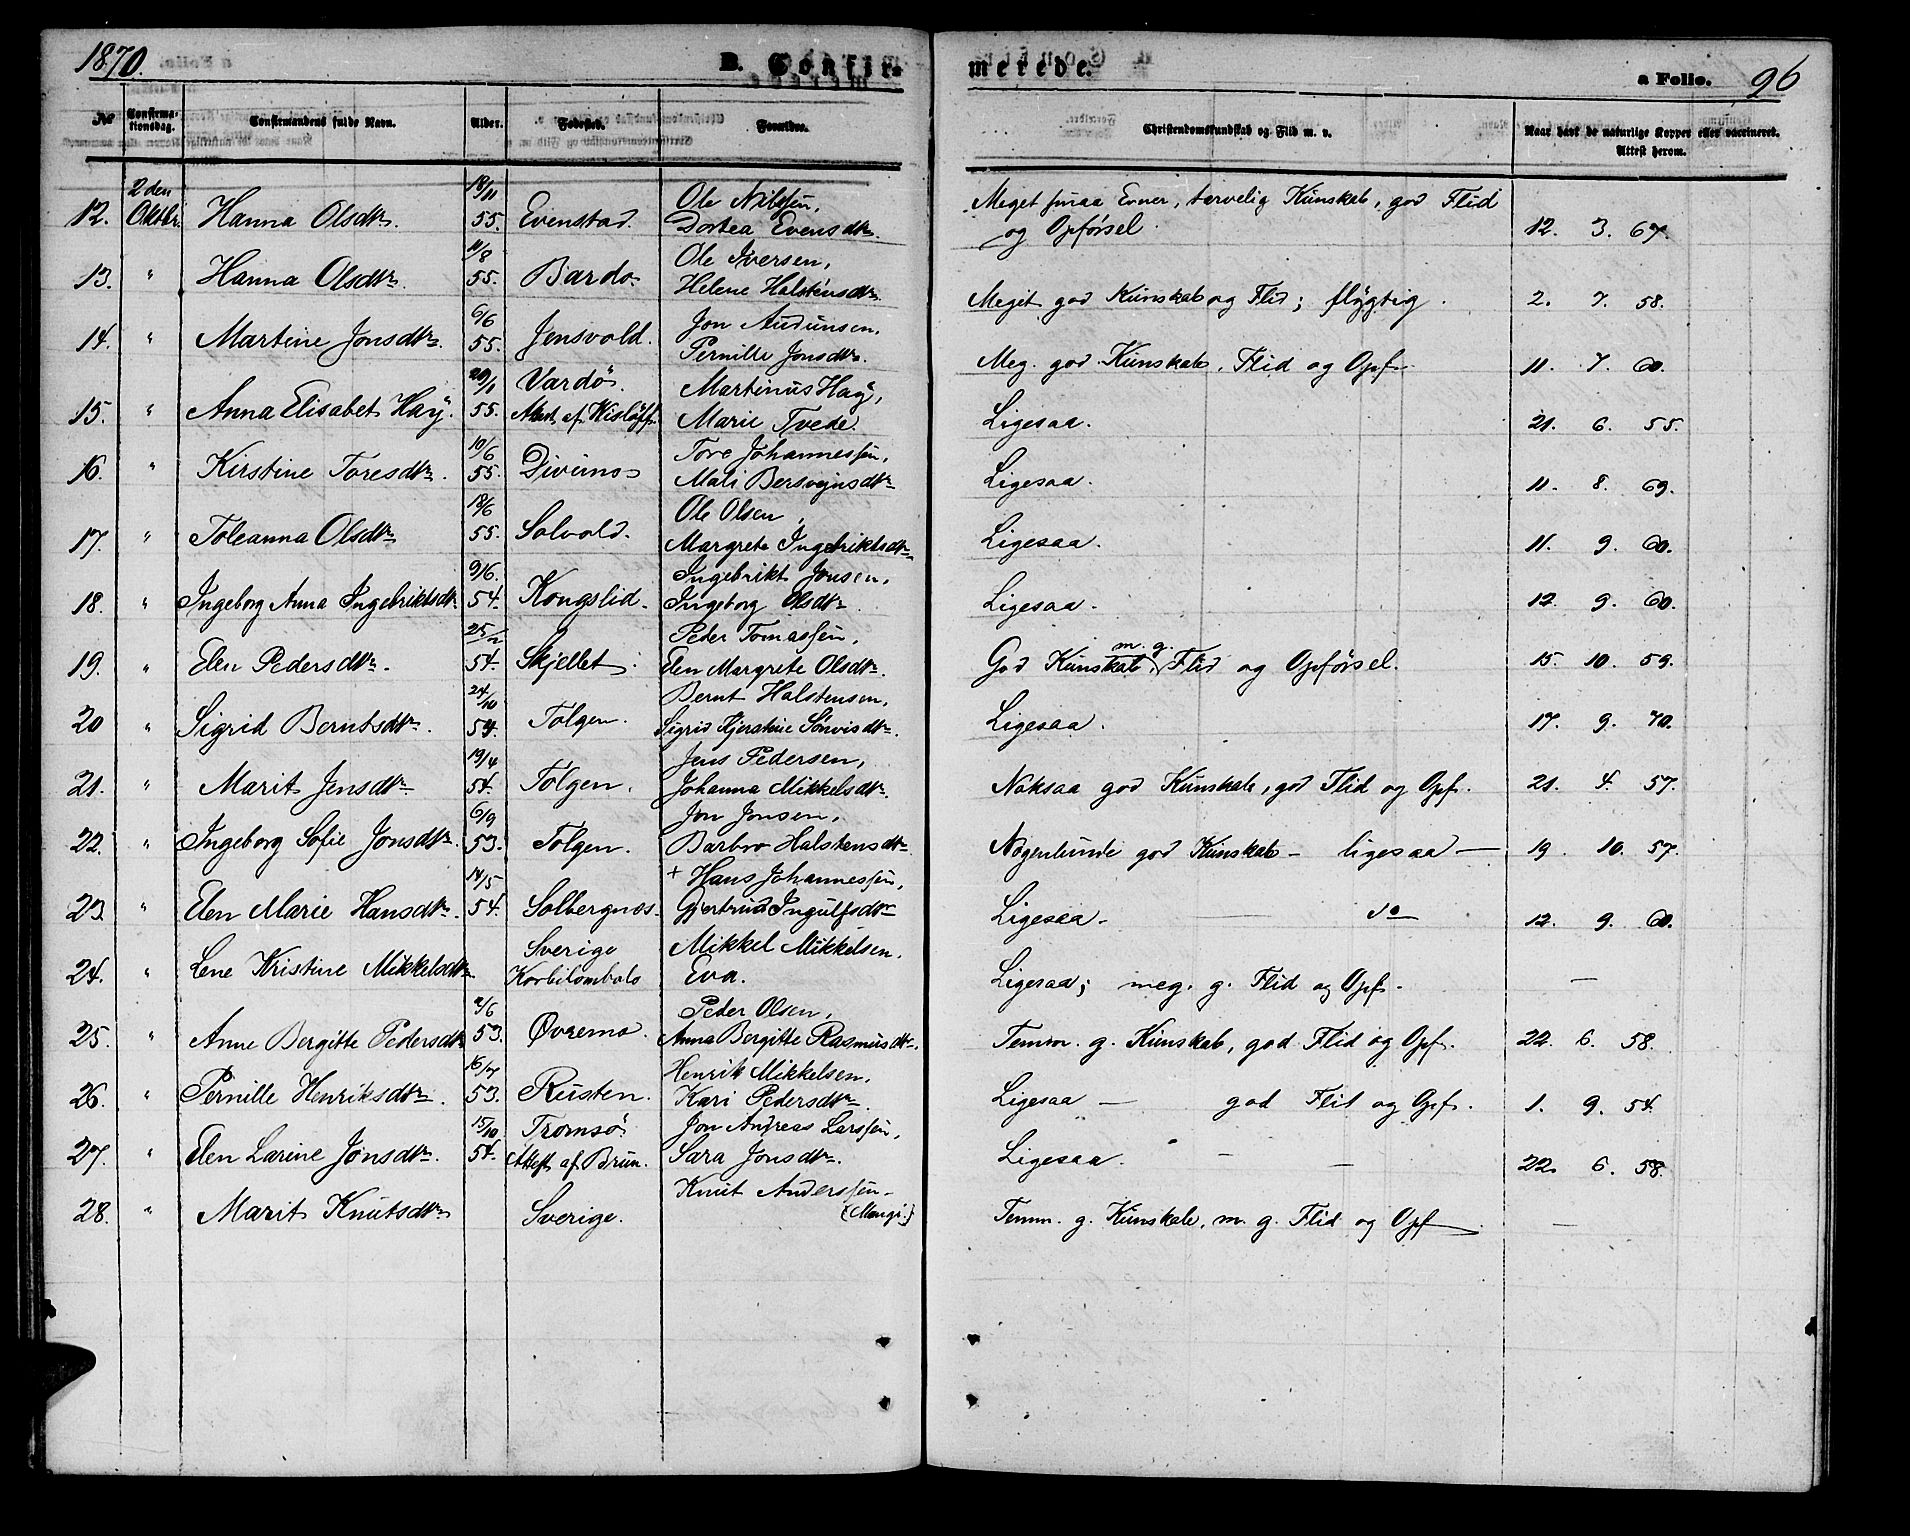 1870.
B. Confir-
merede.
a Folio. 96
No Confirmationsdag. Confirmandens fulde Navn. Alder. Fødested. Forældre. Christendomskundskab og Flid m. v. Naar havt de naturlige Kopper eller vaccineret. Attest herom.
12. 2den Oktbr. Hanna Olsdtr. 18/11 55. Evenstad. Ole Nilssen, Dortea Evensdtr. Meget smaa Evner, tarvelig Kunskab, god Flid og Opførsel. 12. 3. 67.
13. " Hanna Olsdtr. 11/8 55. Bardo. Ole Iversen, Helene Halstensdtr. Meget god Kunskab og Flid; flygtig. 2. 7. 58.
14. " Martine Jonsdtr. 6/6 55. Jensvold. Jon Audunsen, Pernille Jonsdtr. Meg. god Kunskab, Flid og Opf. 11. 7. 60.
15. " Anna Elisabet Haÿ. 20/1 55. Vardö. Attest af Wisløff. Martinus Haÿ, Marie Tvede. Ligesaa. 21. 6. 55.
16. " Kirstine Toresdtr. 10/6 55. Divimo Tore Johannessen, Mali Bersvejnsdtr Ligesaa. 11. 8. 69.
17. " Toleanna Olsdtr 12/6 55. Solvold. Ole Olsen, Margrete Ingebriktsdtr. Ligesaa. 11. 9. 60.
18. " Ingeborg Anna Ingebriktsdtr 9/6. 54. Kongslid. Ingebrikt Jonsen, Ingeborg Olsdtr. Ligesaa. 12. 9. 60.
19. " Elen Pedersdtr. 54. Skjellet. Peder Tomassen, Elen Margrete Olsdtr. God Kunskab, m. g. Flid og Opførsel. 15. 10. 59.
20 " Sigrid Berntsdtr. 24/10 54. Tolgen. Bernt Halstensen, Sigrid Kjerstine Sørvisdtr. Ligesaa. 17. 9. 70.
21. " Marit Jensdtr 19/4 54. Tolgen. Jens Pedersen, Johanna Mikkelsdtr. Noksaa god Kunskab, god Flid og Opf. 21. 4. 57.
22. " Ingeborg Sofie Jonsdtr. 6/9 53. Tolgen. Jon Jonsen, Barbro Halstensdtr. Nogenlunde god Kunskab - ligesaa - 19. 10. 57.
23. " Elen Marie Hansdtr. 14/5 54. Solbergnes. + Hans Johannessen, Gjertrud Ingulfsdtr Ligesaa - do 12. 9. 60.
24. " Lene Kristine Mikkelsdtr. Sverige Korbilombolo Mikkel Mikkelsen, Eva. Ligesaa; meg. g. Flid og Opf. —
25. " Anne Bergitte Pedersdtr 2/6 53. Øvremo. Peder Olsen, Anna Bergitte Rasmusdtr. Temm. g. Kunskab, god Flid og Opf. 22. 6. 58.
26. " Pernille Henriksdtr. 16/7 53. Rusten. Henrik Mikkelsen, Kari Pedersdtr. Ligesaa — god Flid og Opf. 1. 9. 54.
27. " Elen Larine Jonsdtr. 15/10 54. Tromsö. Attest af Brun. Jon Andreas Larssen, Sara Jonsdtr. Ligesaa. — — 22. 6. 58.
28. " Marit Knutsdtr Sverige. Knut Anderssen - (Mangi.) Temm. g. Kunskab, m. g. Flid og Opf —